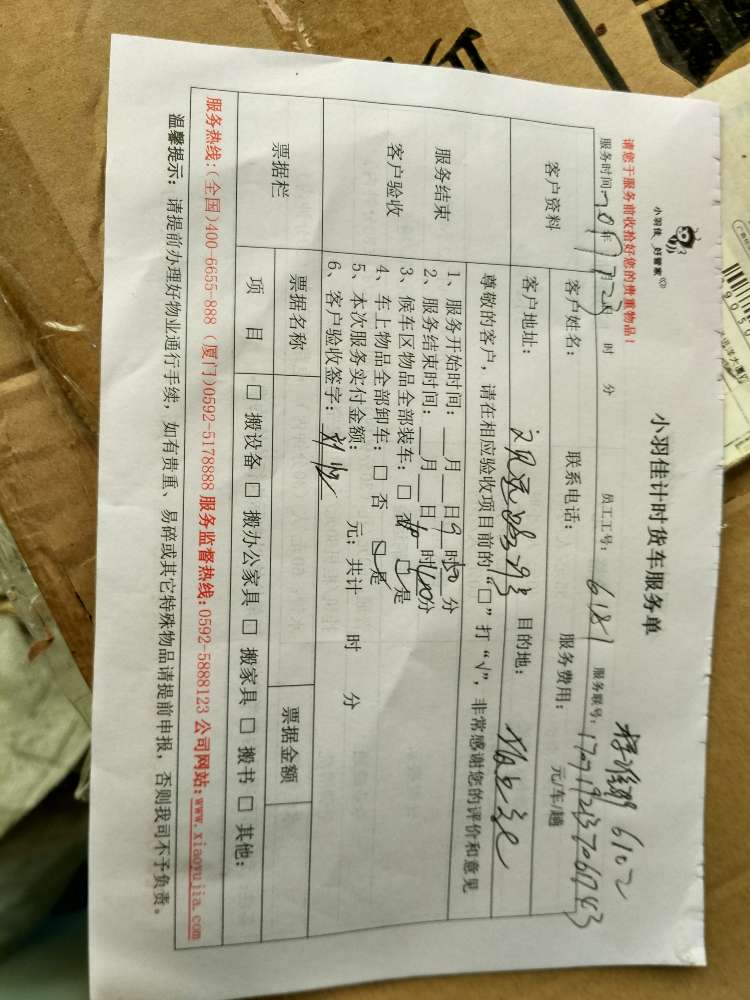 小羽佳 好管家
小羽佳计时货车服务单
请您于服务前收拾好您的贵重物品！
服务时间: 年 7月23日 时 分 员工工号: 6181 服务联号:
6102
客户资料
客户姓名: 联系电话: 服务费用: 元/车/趟
客户地址: 目的地:
尊敬的客户，请在相应验收项目前的“□”打“√”，非常感谢您的评价和意见
服务结束
客户验收
1、服务开始时间: 月 日9时50分
2、服务结束时间: 月 日10时00分
3、候车区物品全部装车: □ 否 □ 是
4、车上物品全部卸车: □ 否 □ 是
5、本次服务实付金额: 元; 共计 时 分
6、客户验收签字:
票据栏
票据名称 票据金额
项 目 □ 搬设备 □ 搬办公家具 □ 搬家具 □ 搬书 □ 其他:
服务热线:(全国)400-6655-888 (厦门)0592-5178888 服务监督热线:0592-5888123 公司网站:www.xiaoyujia.com
温馨提示: 请提前办理好物业通行手续，如有贵重、易碎或其它特殊物品请提前申报，否则我司不予负责。